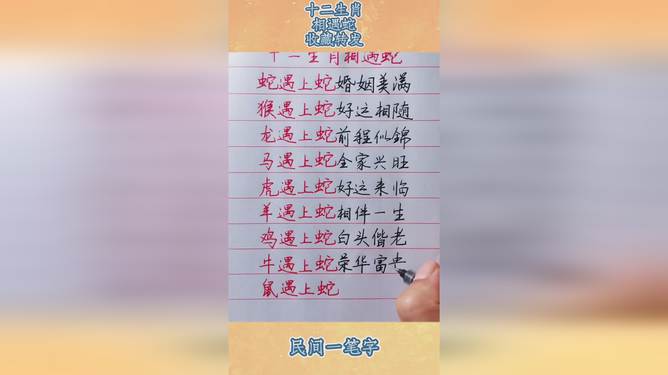 十二生肖
相遇蛇
收藏转发
十二生肖相遇蛇
蛇遇上蛇婚姻美满
猴遇上蛇好运相随
龙遇上蛇前程似锦
马遇上蛇全家兴旺
虎遇上蛇好运来临
羊遇上蛇相伴一生
鸡遇上蛇白头偕老
牛遇上蛇荣华富
鼠遇上蛇
民间一笔字